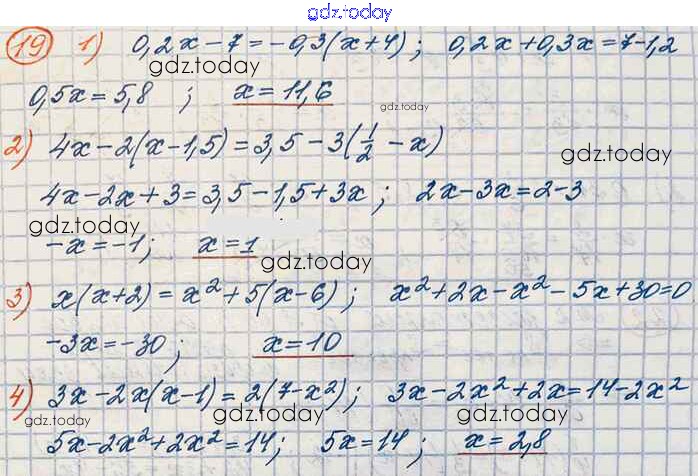 gdz.today
19 1) 0,2x-7=-0,3(x+4); 0,2x+0,3x=7-1,2
gdz.today
0,5x=5,8; x=11,6
gdz.today
2) 4x-2(x-1,5)=3,5-3(1/2-x)
gdz.today
4x-2x+3=3,5-1,5+3x; 2x-3x=2-3
gdz.today
-x=-1; x=1
gdz.today
3) x(x+2)=x²+5(x-6); x²+2x-x²-5x+30=0
-3x=-30; x=10
gdz.today
4) 3x-2x(x-1)=2(7-x²); 3x-2x²+2x=14-2x²
gdz.today gdz.today
5x-2x²+2x²=14; 5x=14; x=2,8
gdz.today